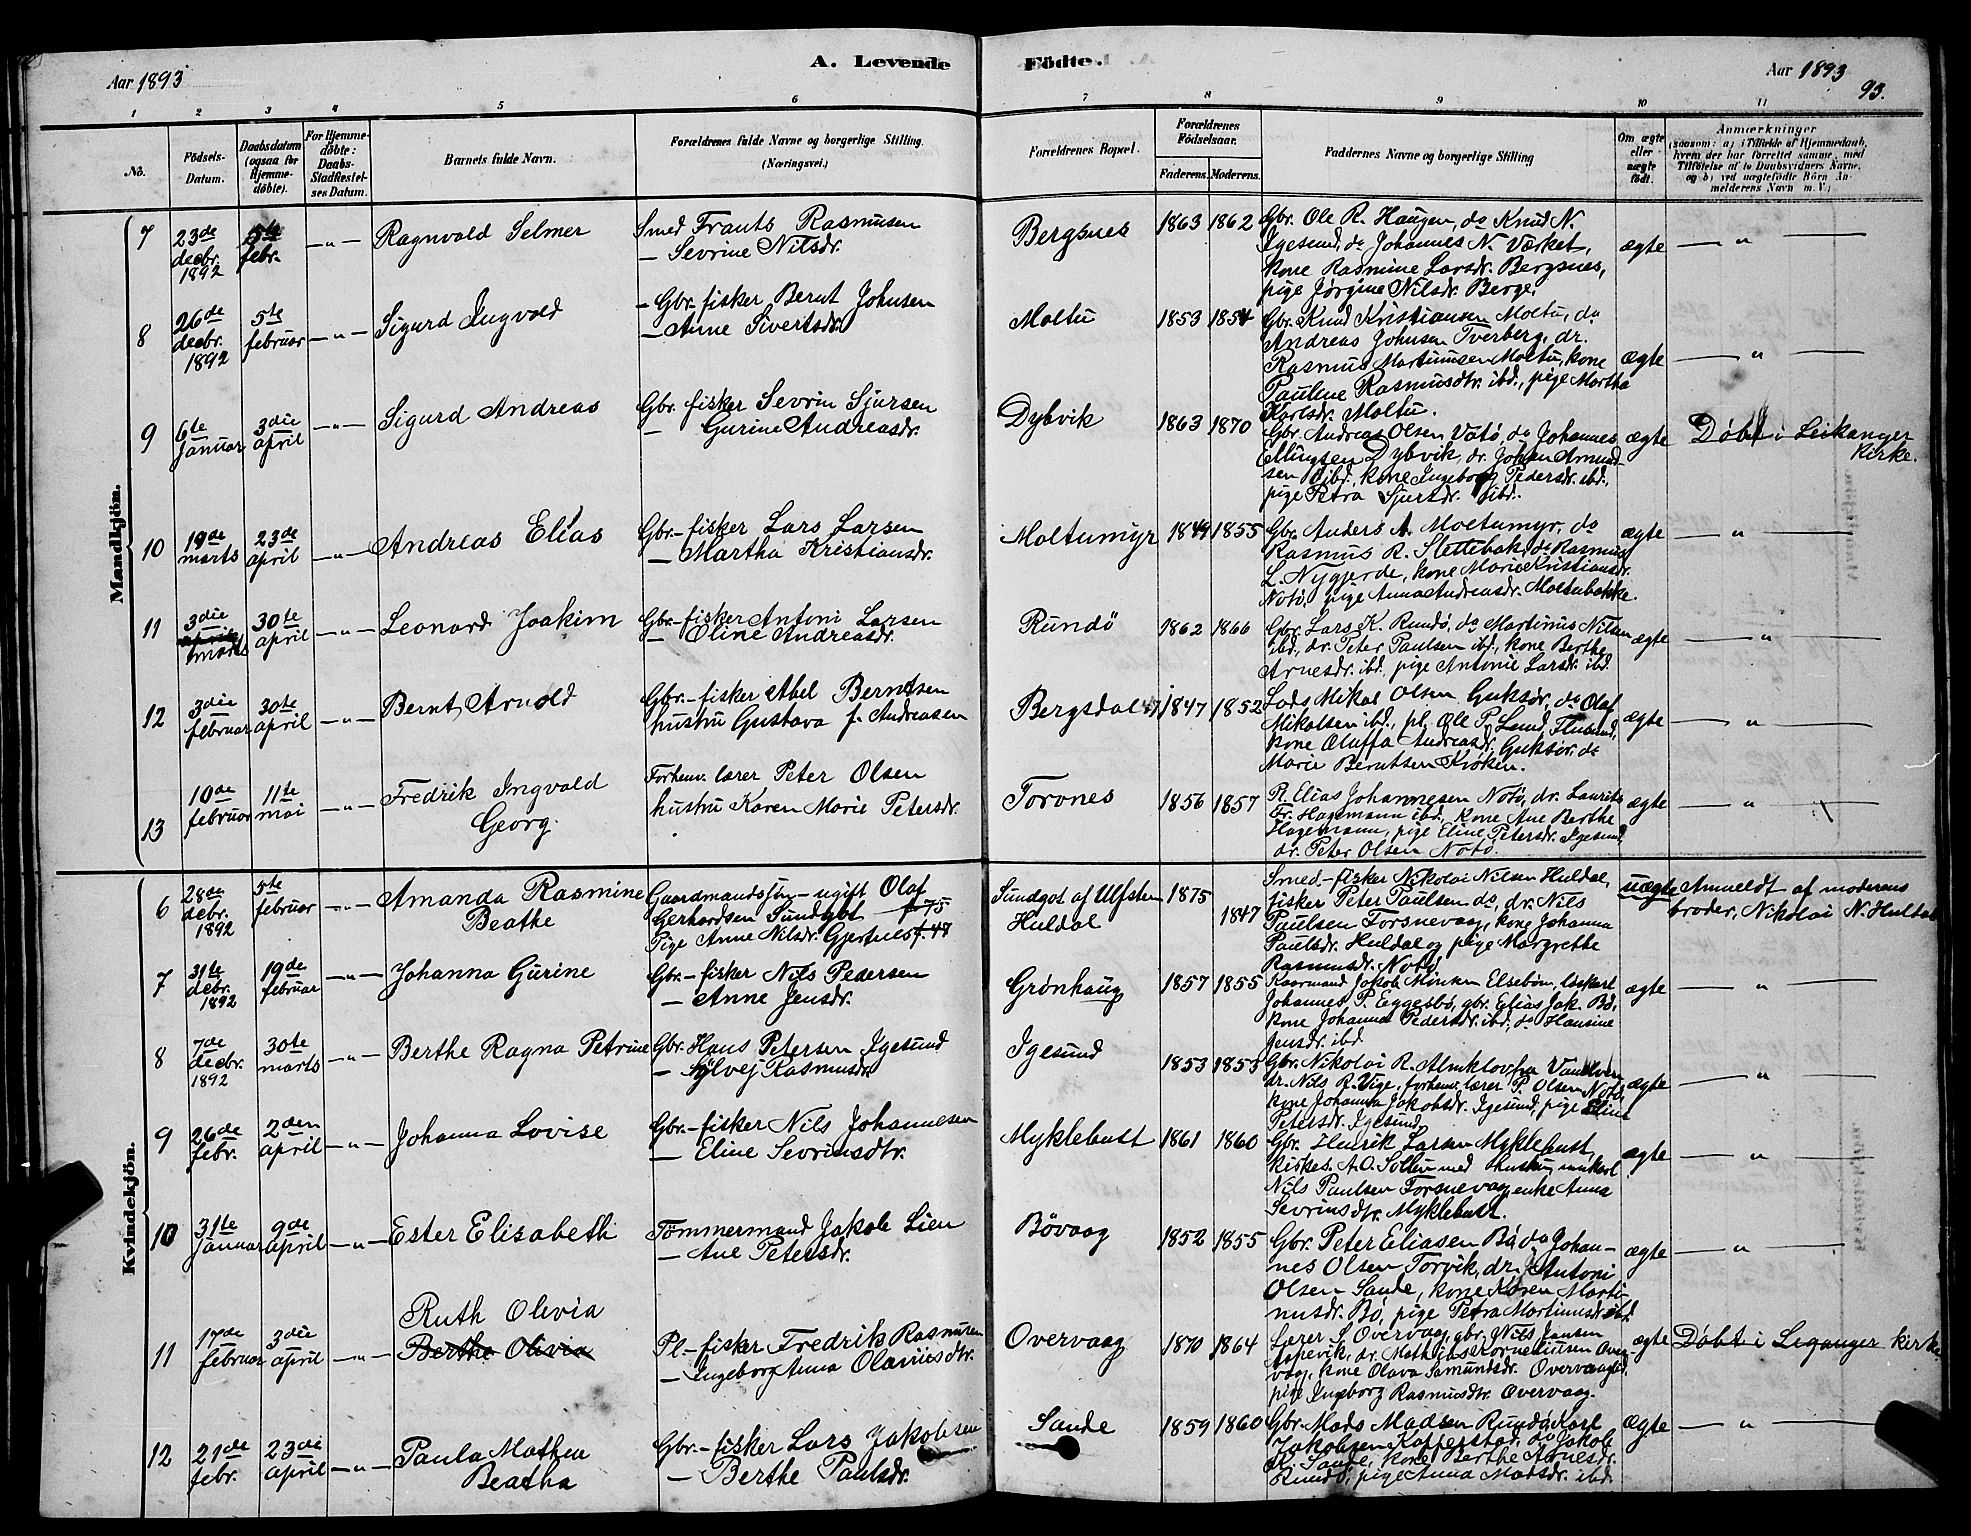 A. Levende Födte.
Aar 1893
Aar 1893
93.
1 2 3 4 5 6 7 8 9 10 11
No.
Födsels-Datum.
Daabsdatum (ogsaa for Hjemmedöbte).
For Hjemmedöbte: Daabs-Stadfæstelses Datum.
Barnets fulde Navn.
Forældrenes fulde Navne og borgerlige Stilling (Næringsvei.)
Forældrenes Bopæl.
Forældrenes Födselsaar.
Faderens. Moderens.
Faddernes Navne og borgerlige Stilling
Om ægte eller uægte födt.
Anmærkninger
(saasom: a) i Tilfælde af Hjemmedaab, hvem der har forrettet samme, med Tilföielse af to Daabsvidners Navne, og b) ved uægtefödte Börn Anmelderens Navn m. V.)
Mandkjön.
7 23de decbr. 1892 5te febr. —"— Ragnvald Selmer
Smed Frants Rasmusen
— Sevrine Nilsdr.
Bergsnes 1863 1862
Gbr. Ole R. Haugen, do Knud N.
Igesund, do Johannes N. Værket,
kone Rasmine Larsdr. Bergsnes,
pige Jørgine Nilsdr. Berge.
ægte —"—
8 26de decbr. 1892 5te februar —"— Sigurd Ingvald
Gbr.-fisker Bernt Johnsen
— Anne Sivertsdr.
Moltu 1853 1854
Gbr. Knud Kristiansen Moltu, do
Andreas Johnsen Tverberg, dr.
Rasmus Martinusen Moltu, kone
Pauline Rasmusdtr. ibd., pige Martha
Karlsdr. Moltu.
ægte —"—
9 6te januar 3die april —"— Sigurd Andreas
Gbr. fisker Sevrin Sjursen
— Gurine Andreasdr.
Dybvik 1863 1870
Gbr. Andreas Olsen Vatö, do Johannes
Ellingsen Dybvik, dr. Johan Amundsen
ibd., kone Ingeborg Pedersdr. ibd.,
pige Petra Sjursdr. ibd.
ægte Døbt i Leikanger kirke.
10 19de marts 23de april —"— Andreas Elias
Gbr.-fisker Lars Larsen
— Martha Kristiansdr.
Moltumyr 1849 1855
Gbr. Anders A. Moltumyr, do
Rasmus R. Slettebak, do Rasmus
L. Nygjerde, kone Marie Kristiansdr.
Notö, pige Anna Andreasdr. Moltubakke.
ægte —"—
11 3die marts 30te april —"— Leonard Joakim
Gbr.-fisker Antoni Larsen
— Oline Andreasdr.
Rundö 1862 1866
Gbr. Lars K. Rundö, do Martinus Nilsen
ibd., dr. Peter Paulsen ibd., kone Berthe
Arnesdr. ibd. pige Antonie Larsdr. ibd.
ægte —"—
12 3die februar 30te april —"— Bernt Arnold
Gbr.-fisker Abel Berntsen
hustru Gustava f. Andreasen
Bergsdal 1847 1852
Lods Mikal Olsen Guksör, do Olaf
Mikalsen ibd., pl. Ole P. Lund, Flusund,
kone Oluffa Andreasdr. Guksör, do
Marie Berntsen Kröken.
ægte —"—
13 10de februar 11te mai —"— Fredrik Ingvald Georg.
Forhenv. lærer Peter Olsen
hustru Karen Marie Petersdr.
Torvnes 1856 1857
P. Elias Johannesen Notö, dr. Laurits
Fr. Hagemann ibd., kone Ane Berthe
Hagemann, pige Eline Petersdr. Igesund,
dr. Peter Olsen Notö.
ægte —"—
Kvindekjön.
6 28de debr. 1892 5te februar —"— Amanda Rasmine Beathe
Gaardmandssøn-ugift Olaf
Gerhardsen Sundgot f. 75
Pige Anne Nilsdr. Gjertnes f. 47
Sundgot af Ulfsten
Huldal
1875 1847
Smed-fisker Nikolai Nilsen Huldal,
fisker Peter Paulsen do, dr. Nils
Paulsen Torsnevaag, kone Johanna
Paulsdr. Huldal og pige Margrethe
Rasmusdr. Notö
uægte Anmeldt af moderens
broder, Nikolai N. Huldal
7 31te debr. 1892 19de februar —"— Johanna Gurine
Gbr.-fisker Nils Pedersen
— Anne Jensdr.
Grönhaug 1857 1855
Kaarmand Jakob Monsen Elsebøen, løskarl
Johannes P. Eggesbö, gbr. Elias Jak. Bö,
kone Johanna Pedersdr. ibd., do Hansine
Jensdr. ibd.
ægte —"—
8 7de decbr. 1892 30te marts —"— Berthe Ragna Petrine
Gbr. Hans Petersen Igesund
— Sylvej Rasmusdr.
Igesund 1853 1853
Gbr. Nikolai R. Almklov fra Vandven
dr. Nils R. Vige, forhenv. lærer P. Olsen Notö,
kone Johanna Jakobsdr. Igesund, pige Eline
Petersdr. Igesund.
ægte —"—
9 26de febr. 2den april —"— Johanna Lovise
Gbr.-fisker Nils Johannesen
— Eline Sevrinsdtr.
Myklebust 1861 1860
Gbr. Henrik Larsen Myklebust,
kirkes. A. O. Sollid med hustru, unkarl
Nils Paulsen Torsnevaag, enke Anna
Sevrinsdtr. Myklebust.
ægte —"—
10 31te januar 9de april —"— Ester Elisabeth
Tömmermand Jakob Lien
— Ane Petersdr.
Bövaag 1852 1855
Gbr. Peter Eliasen Bö, do Johannes
Olsen Torvik, dr. Antoni
Olsen Sande, kone Karen Martinusdr.
Bö, pige Petra Martinusdr. ibd.
ægte —"—
11 17de februar 3die april —"— Ruth Olivia
Berthe Olivia
Pl-fisker Fredrik Rasmusen
— Ingeborg Anna Olaviisdtr.
Overvaag 1870 1864
Lærer S. Overvaag, gbr. Nils Jansen
Aspevik, dr. Mathias Korneliusen Overvaag,
kone Olava Samundsdr. Overvaag,
pige Ingeborg Rasmusdtr. Overvaag.
ægte Döbt i Leganger kirke
12 21de febr. 23di april —"— Paula Mathea Beatha
Gbr.-fisker Lars Jakobsen
— Berthe Paulsdr.
Sande 1859 1860
Gbr. Mads Madsen Rundö, Karl
Jakobsen Kopperstad, do Jakob
K. Sande, kone Berthe Arnesdr.
Rundö, pige Anna Madsdr. ibd.
ægte —"—